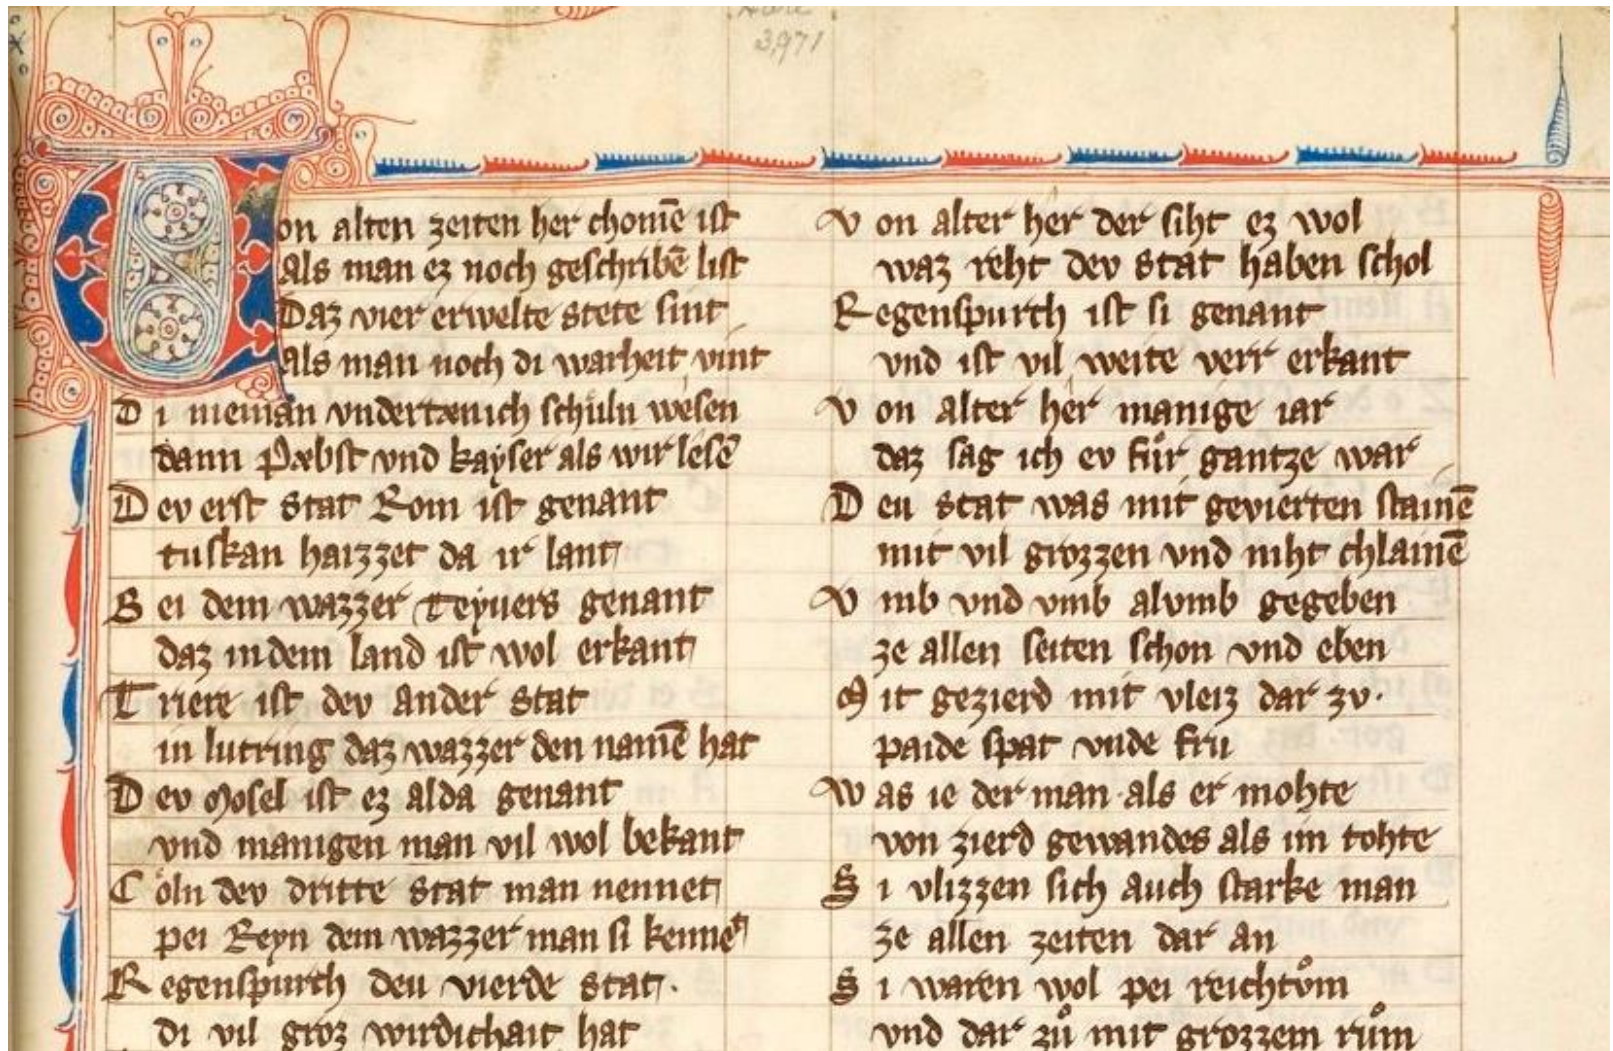 3,971
Von alten zeiten her chomē ist
als man ez noch geschribē list
Daz vier erwelte stete sint
als man noch di warheit vint
Di nieman vndertænich schuͤln wesen
dann Pæbst vnd kayser als wir lesē
Dev erst stat Rom ist genant
tuskan haizzet da ir lant
Bei dem wazzer Teyuers genant
daz in dem land ist wol erkant
Triere ist dev ander stat
in lutring daz wazzer den namē hat
Dev Mosel ist ez alda genant
vnd manigen man vil wol bekant
Coͤln dev dritte stat man nennet
pei Reyn dem wazzer man si kennet
Regenspurch deu vierde stat.
di vil groz wirdichait hat
Von alter her der siht ez wol
waz reht dev stat haben schol
Regenspurch ist si genant
vnd ist vil weite verr erkant
Von alter her manige iar
daz sag ich ev fuͤr gantze war
Deu stat was mit gevierten stainē
mit vil grozzen vnd niht chlainē
Vmb vnd vmb alvmb gegeben
ze allen seiten schon vnd eben
Mit gezierd mit vleiz dar zv.
paide spat vnde fru
Was ie der man als er mohte
von zierd gewandes als im tohte
Si vlizzen sich auch starke man
ze allen zeiten dar an
Si waren wol pei reichtvͦm
vnd dar zuͦ mit grozzem ruͦm